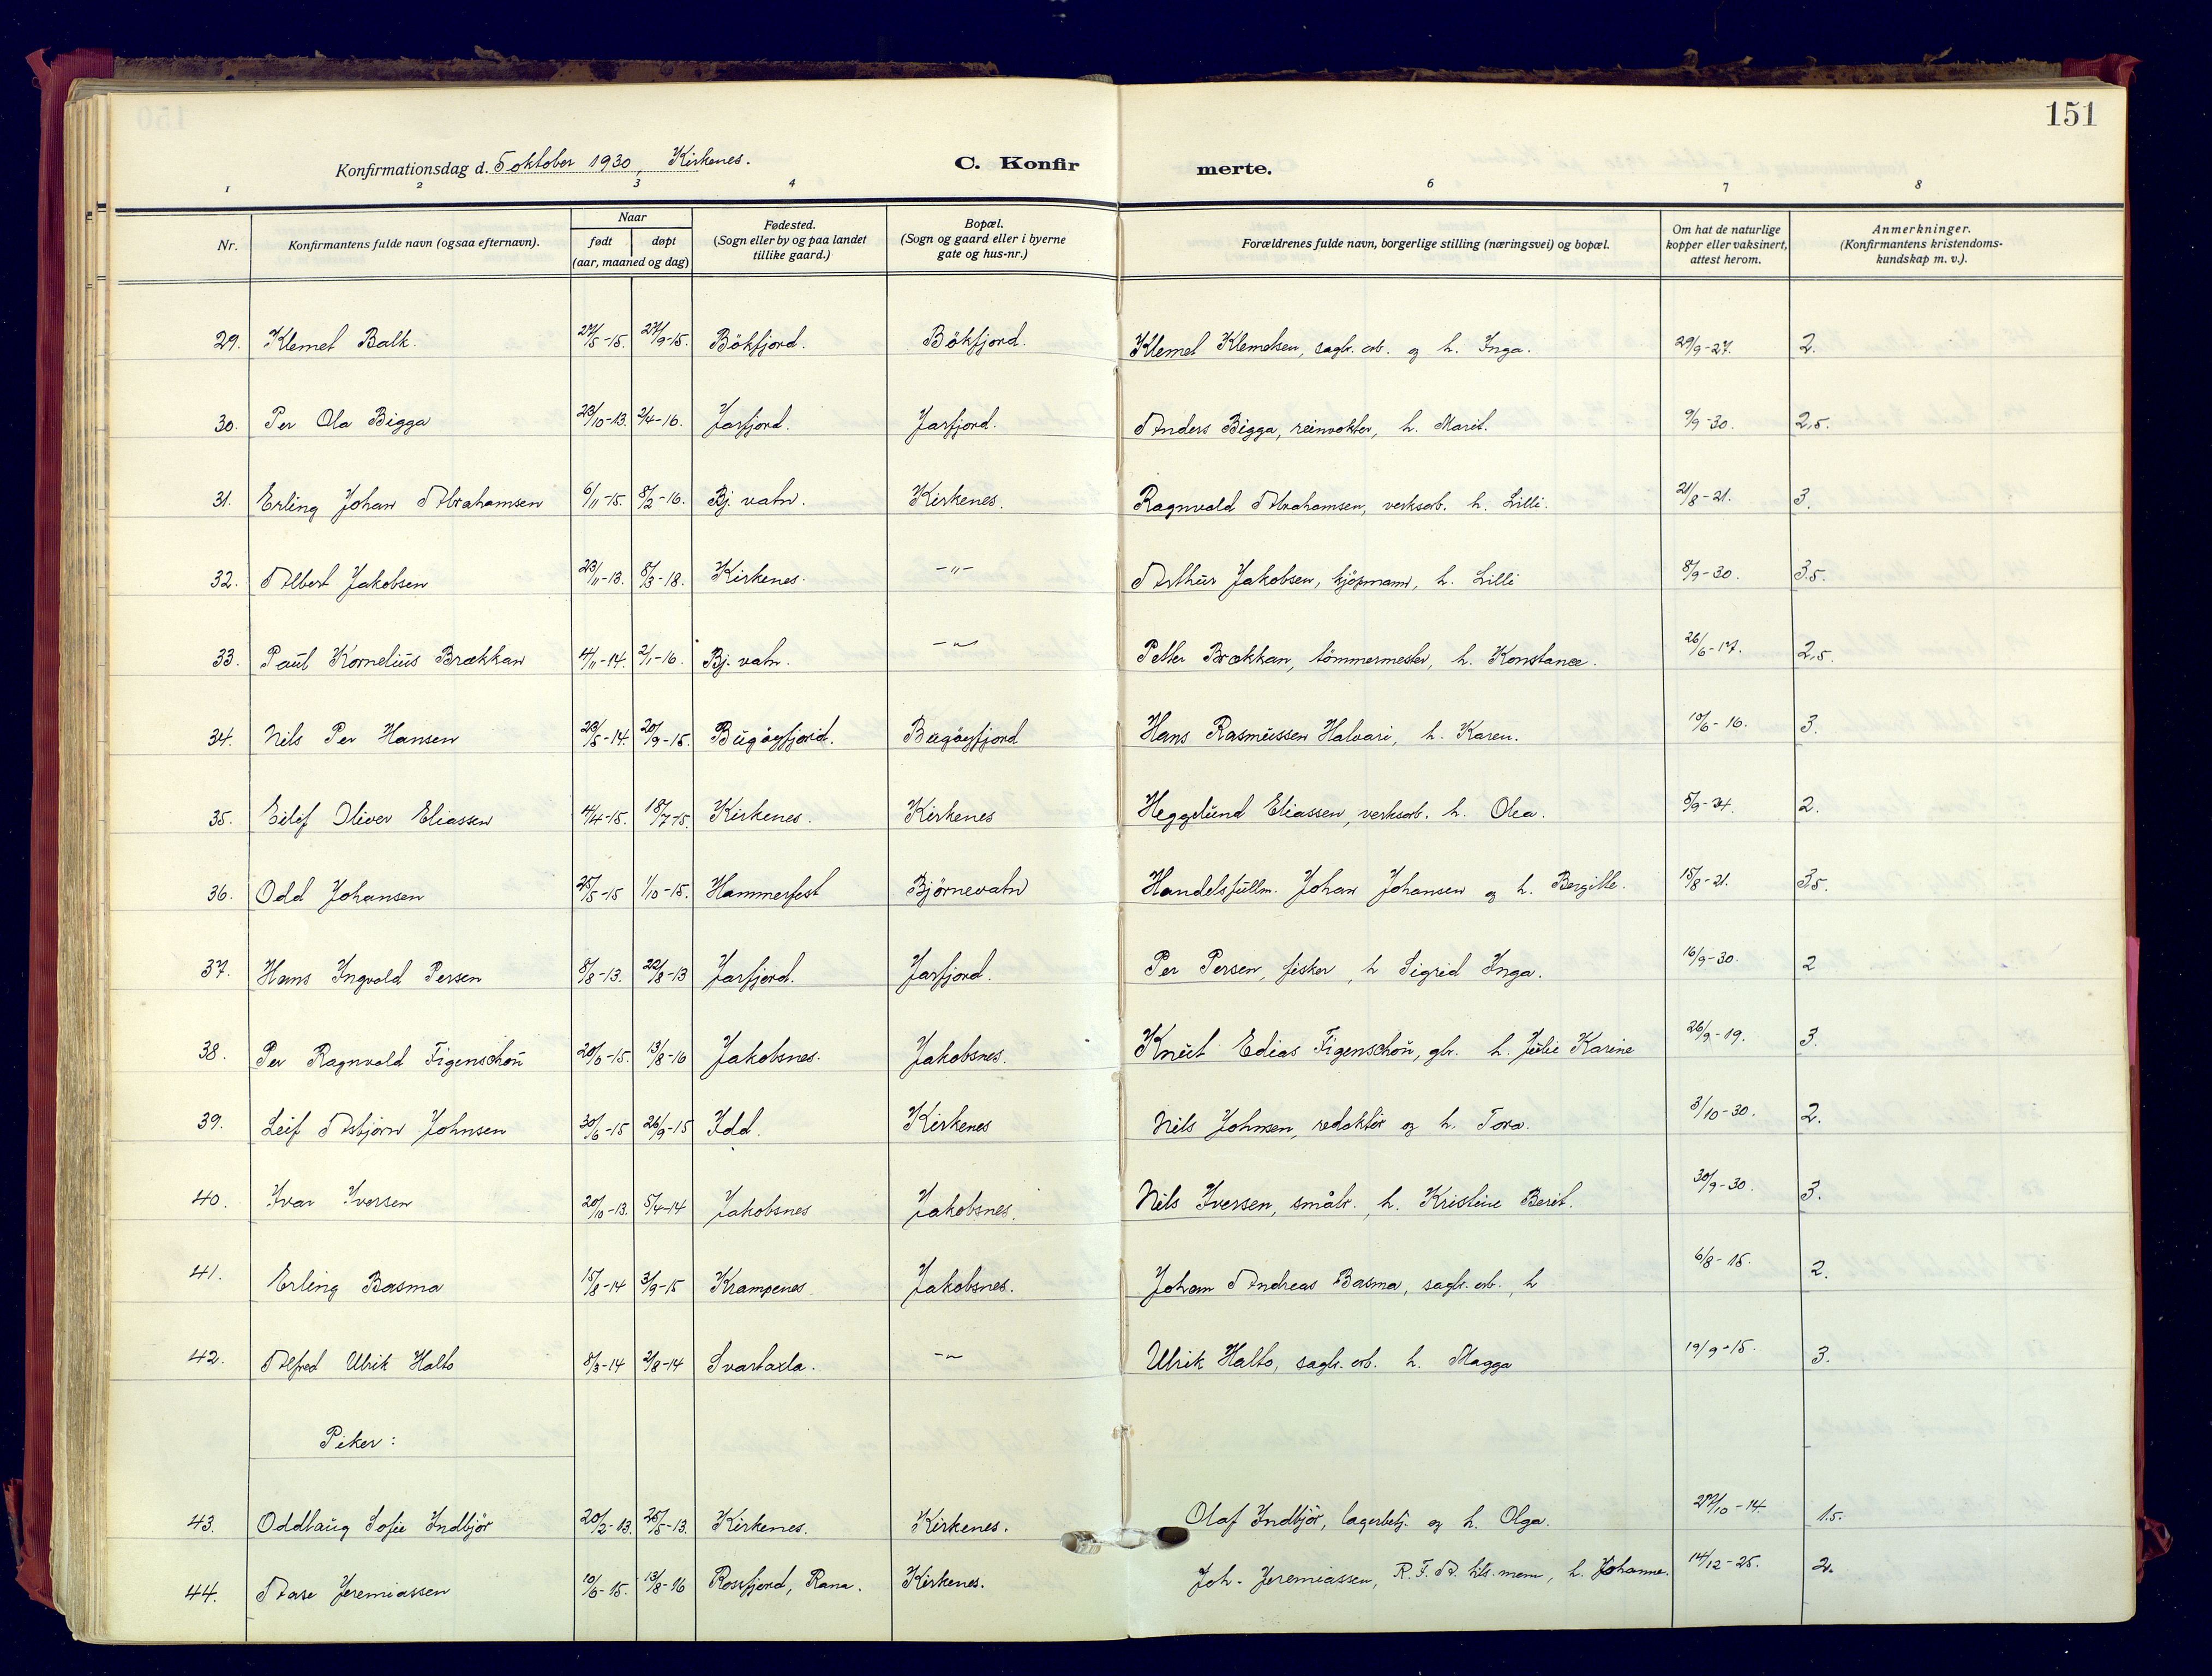 151
Konfirmationsdag d. 5 oktober 1930, Kirkenes. C. Konfir merte.
1 2 3 4 6 7 8
Nr. Konfirmantens fulde navn (ogsaa efternavn). Naar født døpt (aar, maaned og dag) Fødested. (Sogn eller by og paa landet tillike gaard.) Bopæl. (Sogn og gaard eller i byerne gate og hus-nr.) Forældrenes fulde navn, borgerlige stilling (næringsvei) og bopæl. Om hat de naturlige kopper eller vaksinert, attest herom. Anmerkninger. (Konfirmantens kristendoms-kundskap m. v.).
29. Klemet Balk. 27/5-15. 27/9-15. Bökfjord. Bökfjord. Klemet Klemetsen, sagb. arb. og h. Inga. 29/9-27. 2.
30. Per Ola Bigga 23/10-13. 2/4-16. Jarfjord. Jarfjord. Anders Bigga, reinvokter, h. Marit. 9/9-30. 2,5.
31. Erling Johan Abrahamsen 6/11-15. 8/2-16. Bj. vatn. Kirkenes. Ragnvald Abrahamsen, verksarb. h. Lilli. 21/8-21. 3.
32. Albert Jakobsen 23/11-13. 8/3-18. Kirkenes. -"- Arthur Jakobsen, kjöpmann, h. Lilli 8/9-30. 3.5.
33. Paul Kornelius Brækkan 4/11-14. 2/1-16. Bj. vatn. -"- Petter Brækkan, tömmermester, h. Konstance. 26/6-17. 2,5.
34. Nils Per Hansen 29/5-14. 20/9-15. Bugöyfjord. Bugöyfjord Hans Rasmussen Halvari, h. Karen. 10/6-16. 3.
35. Eilif Oliver Eliassen 4/4-15. 18/7-15. Kirkenes. Kirkenes Heggelund Eliassen, verksarb. h. Olea. 5/9-24. 2.
36. Odd Johansen 25/5-15 1/10-15. Hammerfest Björnevatn Handelsfullm. Johan Johansen og h. Bergitte. 15/8-21. 3.5.
37. Hans Ingvald Persen 8/8-13. 22/8-13 Jarfjord. Jarfjord. Per Persen, fisker, h Sigrid Inga. 16/9-30. 2
38. Per Ragnvald Figenschou 20/6-15. 13/8-16 Jakobsnes. Jakobsnes. Knut Edias Figenschou, gbr. h. Julie Karine 26/9-19. 3.
39. Leif Asbjörn Johnsen 30/6-15 26/9-15 Idd. Kirkenes Nils Johnsen, redaktör og h. Tora. 3/10-30. 2.
40. Ivar Iversen 20/10-13. 5/4-14 Jakobsnes Jakobsnes. Nils Iversen, småbr., h. Kristine Berit. 30/9-30. 3.
41. Erling Basma 15/8-14 3/9-15 Krampenes Jakobsnes. Johan Andreas Basma, sagbr. arb., h 6/8-15. 2.
42. Alfred Ulrik Halto 8/3-14 2/8-14 Svartaxla. -"- Ulrik Halto, sagbr. arb. h. Magga 19/9-15. 3.
Piker:
43. Oddlaug Sofie Indbjör 20/2-13. 25/5-13. Kirkenes. Kirkenes. Olaf Indbjör, lagerbetj. og h. Olga. 27/10-14. 1.5.
44. Aase Jeremiassen 10/6-15. 13/8-16 Rossfjord, Rana. Kirkenes. Joh. Jeremiassen, h. Johanne. 14/12-25. 2.